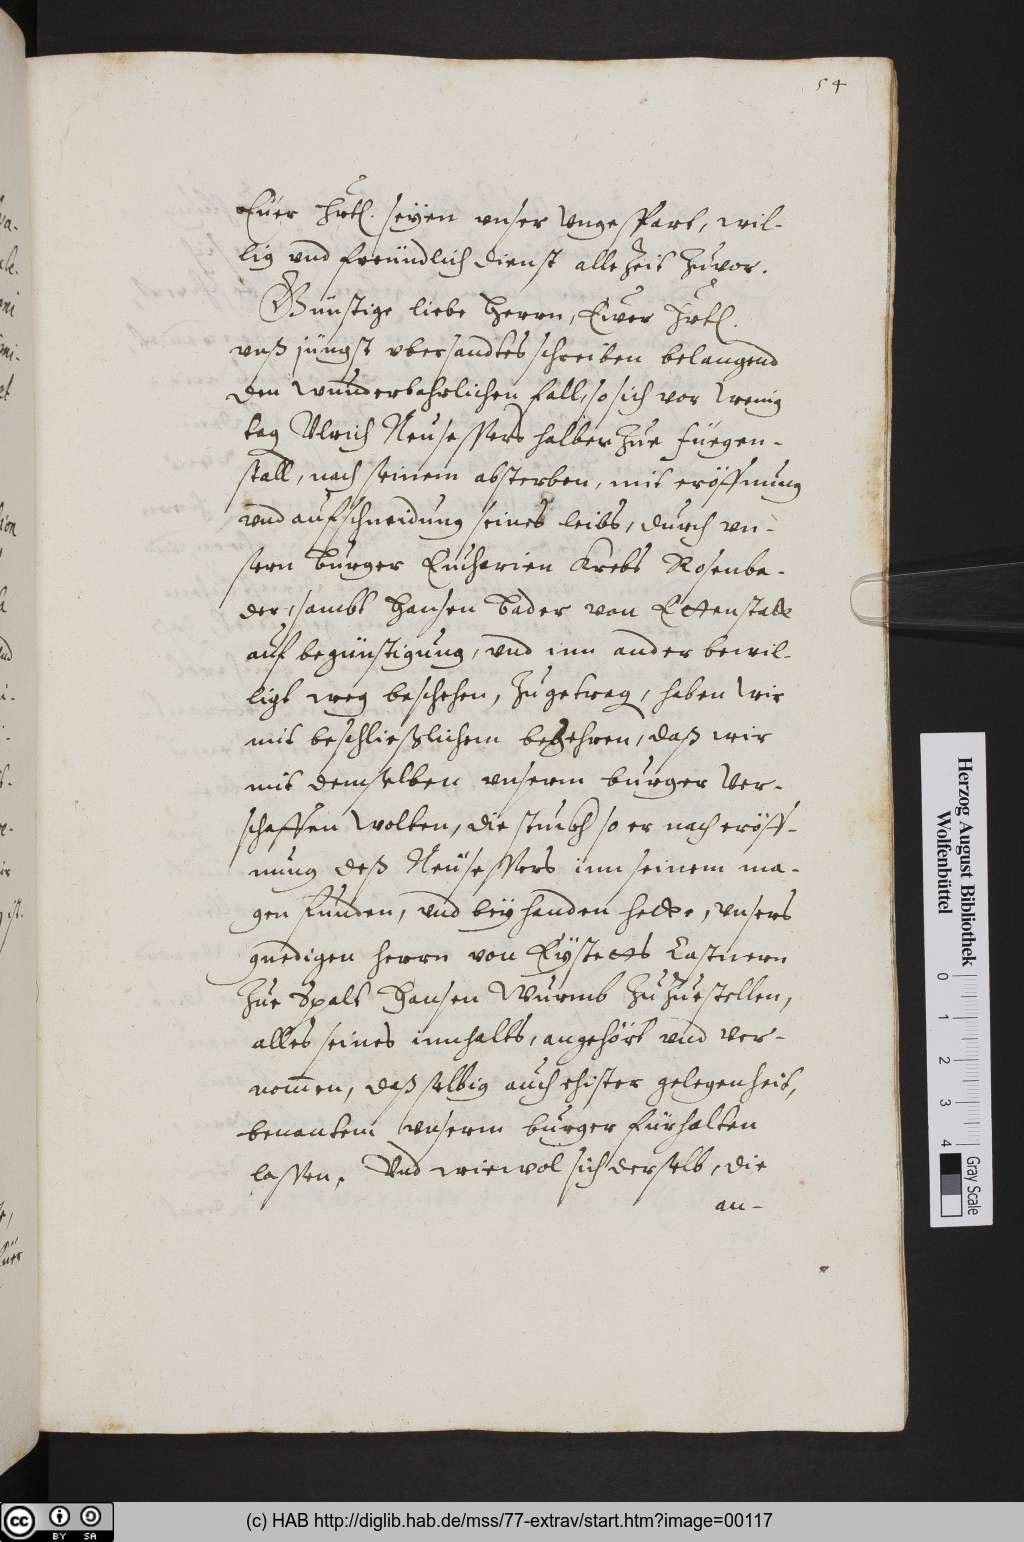 54
Euer Hrtl. seÿen vnser Vngespart, wil-
lig vnd freündlich dienst alle Zeit Zuvor.
Günstige liebe Herrn, Ewer Hrtl.
vnß jüngst vbersandtes schreiben belangend
den Wunderbahrlichen fall, so sich vor Wenig
tag Vlrich Neusessers halber Zue Füegen-
stall, nach seinem absterben, mit eröffnung
vnd aufschneidung seines leibs, durch vn-
sern Burger Eucharien Krebs Rosenba-
der, sambt Hansen Bader von Ettenstatt
auf begünstigung, vnd inn ander bewil-
ligt weg beschehen, Zugetrag, haben Wir
mit beschließlichem begehren, daß wir
mit demselben vnserm burger Ver-
schaffen Wolten, die stuckh so er nach eröff-
nung deß Neüsessers inn seinem ma-
gen funden, vnd beÿ handen hette, vnsers
gnedigen herrn von Eÿstetts Castnern
Zue Spalt Hansen Wurmb ZuZuestellen,
alles seines innhalts, angehört vnd ver-
nom̄en, daß selbig auch ehister gelegenheit,
benantem vnserm burger fürhalten
lassen, Vnd wiewol sich derselb, die
an-
Herzog August Bibliothek
Wolfenbüttel
0 1 2 3 4
Gray Scale
cc BY SA
(c) HAB http://diglib.hab.de/mss/77-extrav/start.htm?image=00117